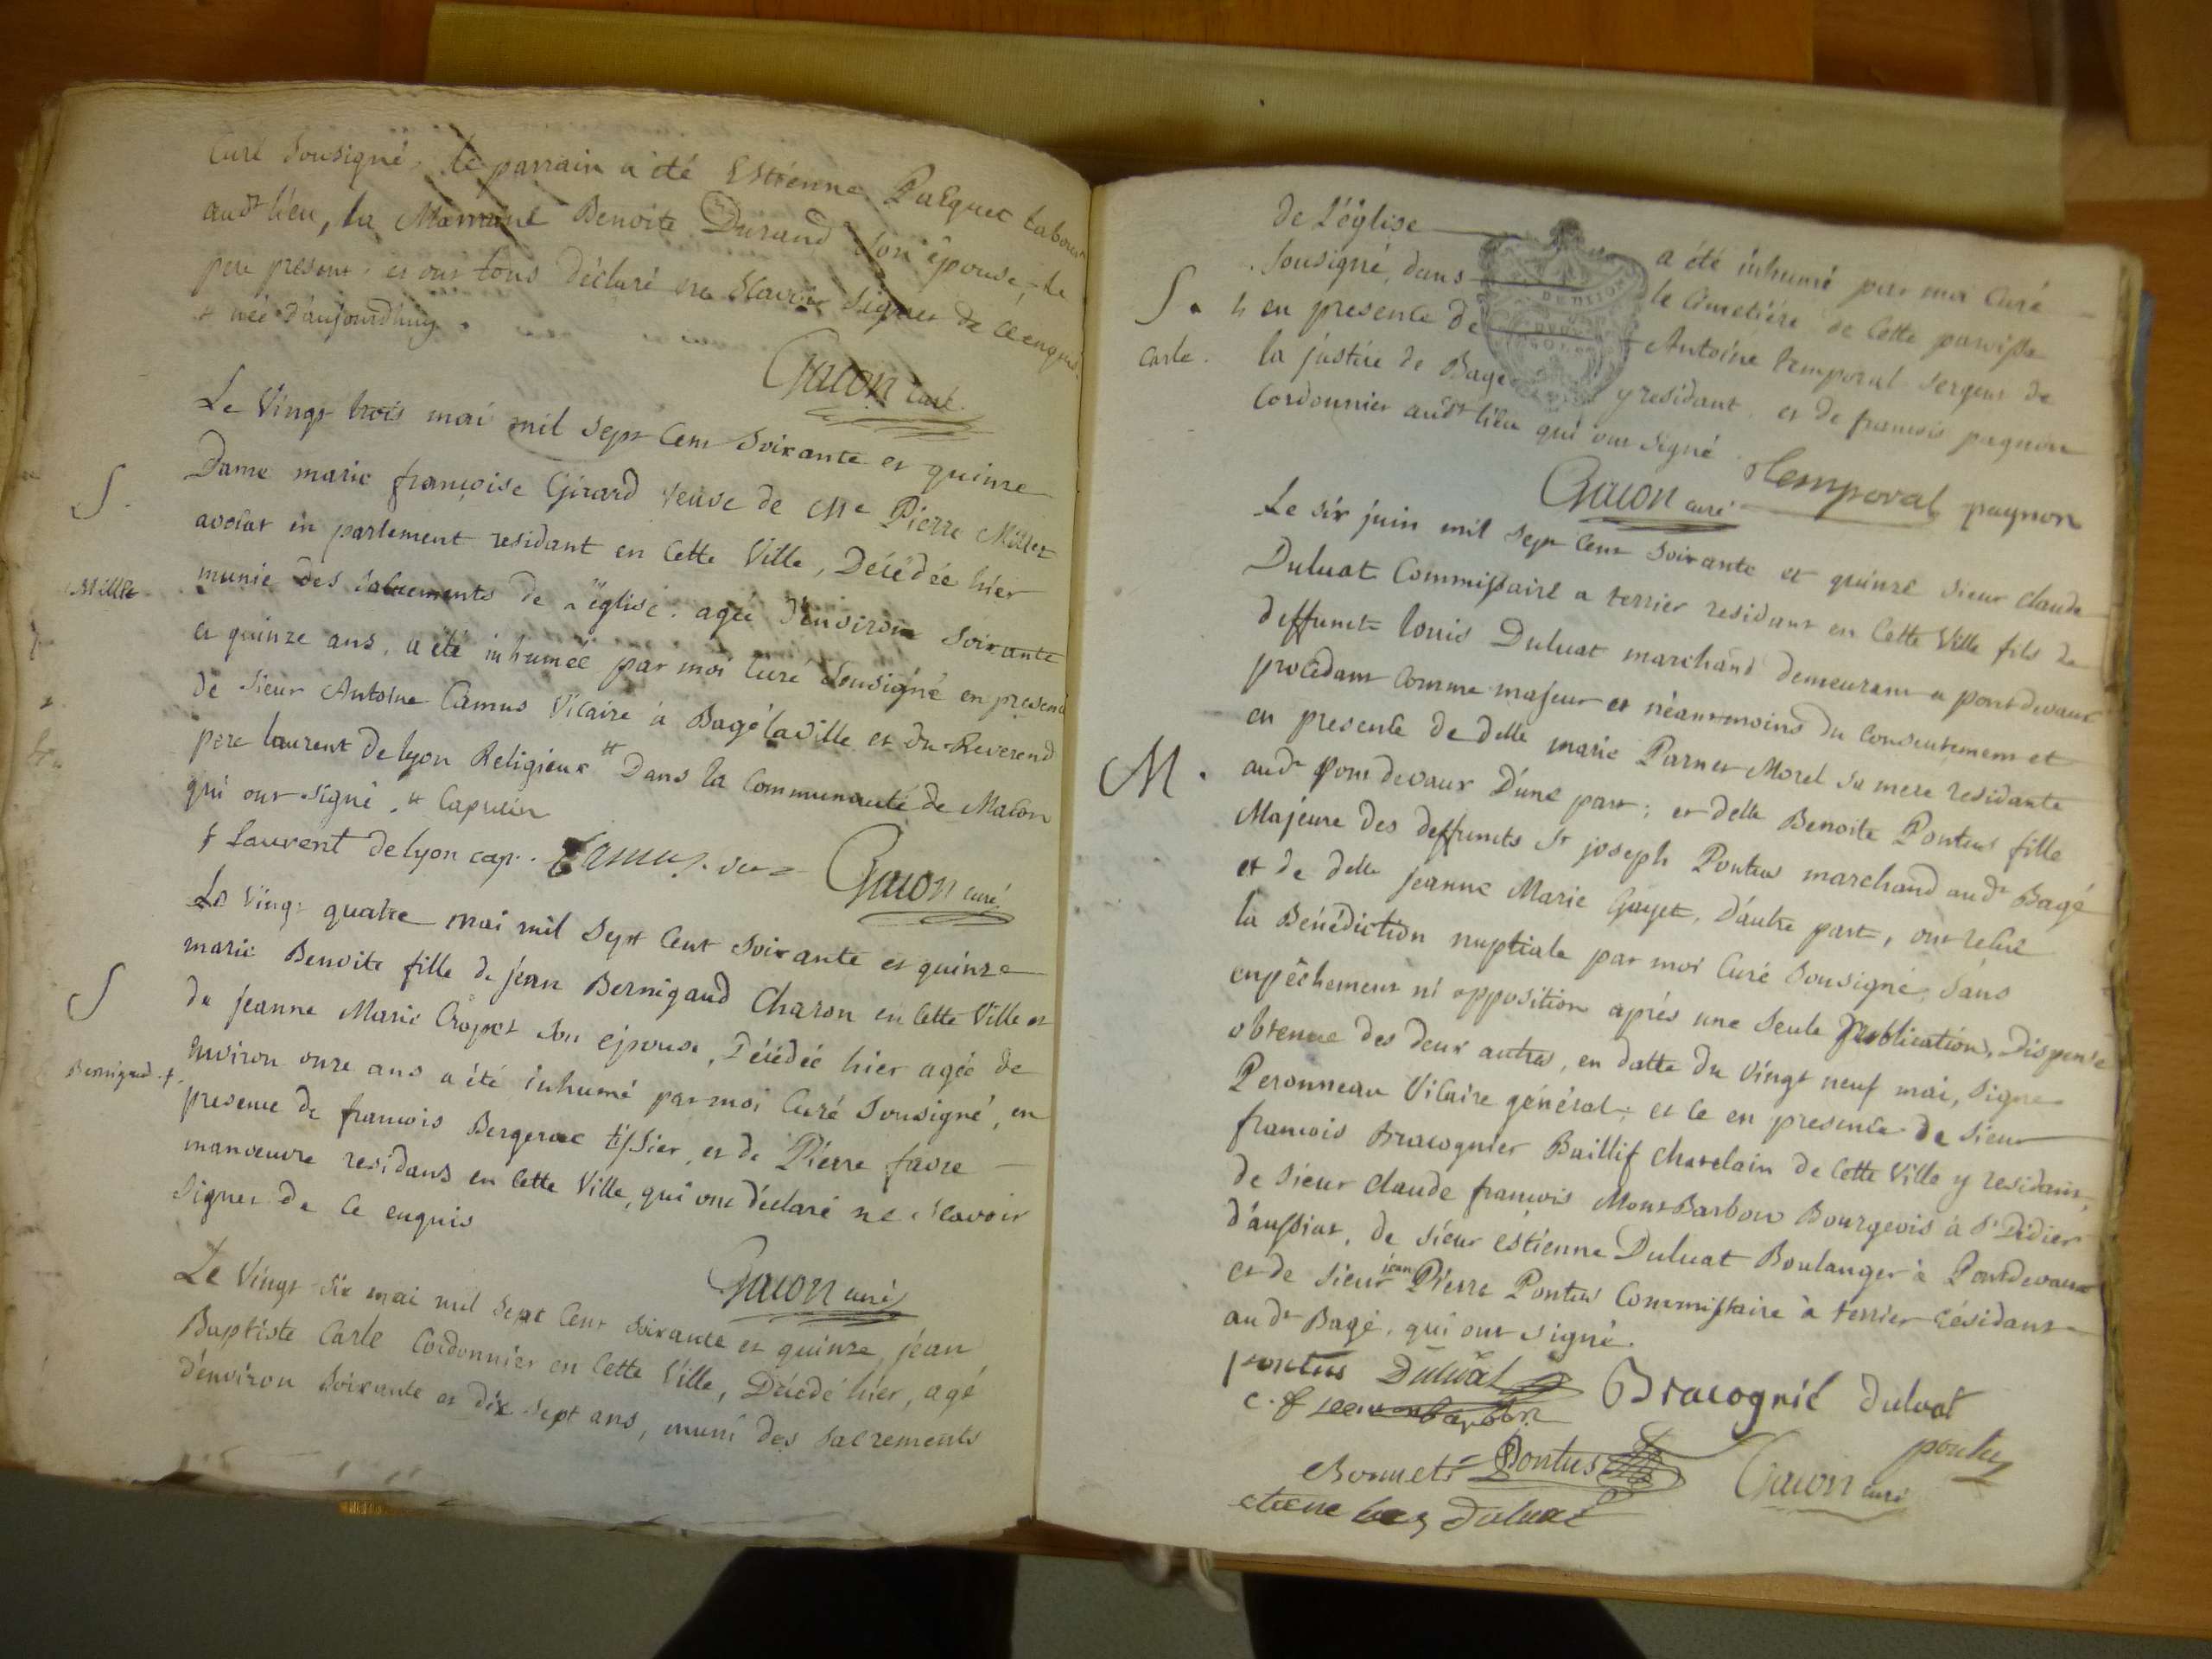 Curé Sousigné, le parrain a été Estienne Paequet labour
audt lieu, la Marraine Benoite Durand son épouse, le
pere present et ont tous déclaré ne scavoir signer de ce enquis
+ née d'aujourd'huy
Gacon curé
Le Vingt trois mai mil sept Cent Soixante et quinze
S.
Dame marie françoise Girard veuve de Me Pierre Millet
avocat en parlement residant en Cette Ville, Décédée hier
Millet
munie des Sacrements de l'église, agée d'environ Soixante
et quinze ans, a été inhumée par moi Curé Sousigné en presence
de Sieur Antoine Camus Vicaire à Bagé la Ville et du Reverend
pere laurent de lyon Religieux # Dans la Communauté de Macon
qui ont signé, # Capucin
f Laurent de lyon cap. Camus vic
Gacon curé
Le Vingt quatre mai mil Sept Cent Soixante et quinze
S
marie Benoite fille de jean Bernigaud Charon en Cette Ville et
de jeanne Marie Cropet son épouse, Décédée hier agée de
Bernigaud
environ onze ans a été inhumé par moi Curé Sousigné, en
presence de francois Bergerac tissier, et de Pierre favre
manoeuvre residans en Cette Ville, qui ont déclaré ne scavoir
Signer de Ce enquis
Gacon curé
Le Vingt Six mai mil Sept Cent Soixante et quinze, jean
Baptiste Carle Cordonnier en Cette Ville, Décédé hier, agé
d'environ Soixante et dix Sept ans, muni des Sacrements
de L'église a été inhumé par moi Curé
Sousigné, dans le Cimetiére de Cette paroisse
S.
en presence de Antoine temporal Sergent de
Carle.
la justice de Bagé y residant, et de francois pagnon
Cordonnier audt lieu qui ont Signé
Gacon curé Temporal pagnon
Le Six juin mil Sept Cent Soixante et quinze Sieur Claude
Duluat Commissaire a terrier residant en Cette Ville fils de
deffunct louis Duluat marchand demeurant a pontdevaux
procedant Comme majeur et néantmoins du Consentement et
en presence de delle marie Parnet Morel sa mere residante
M.
audt pont devaux D'une part; et delle Benoite Pontus fille
Majeure des deffuncts Sr joseph Pontus marchand audt Bagé
et de delle jeanne Marie Gayet, D'autre part, ont reçu
la Bénédiction nuptiale par moi Curé Sousigné, Sans
empêchement ni opposition aprés une Seule publication, Dispense
obtenue des deux autres, en datte du Vingt neuf mai, Signé
Peronneau Vicaire général; et Ce en presence de Sieur
francois Bracognier Baillif Chatelain de Cette Ville y residant,
de Sieur Claude francois MontBarbon Bourgeois à St Didier
d'aussiat, de Sieur Estienne Duluat Boulanger à Pontdevaux
et de Sieur jean Pierre Pontus Commissaire à terrier résidant
audt Bagé, qui ont signé.
pontus Duluat Bracognié duluat
c. f montbarbon
Pontus Gacon curé pontus
Duluat